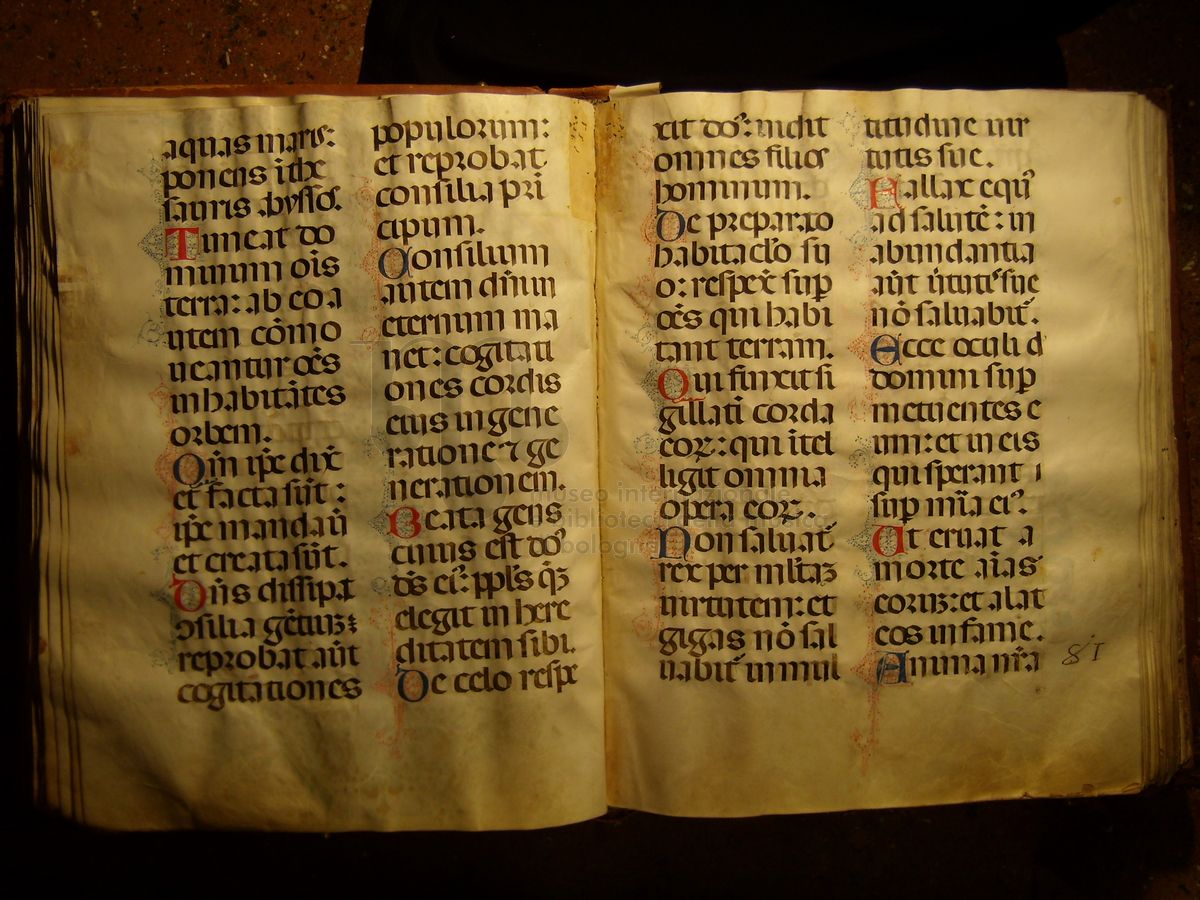 aquas maris:
ponens ithe
sauris abysso.
Timeat do
minum ois
terra: ab eo a
utem cōmo
ueantur oēs
inhabitātes
orbem.
Qm̄ ip̄e dix̄
et facta sūt:
ip̄e mandaū
et creata sūt.
Dn̄s dissipat
ↄsilia gētiuꝫ:
reprobat aūt
cogitationes
populorum:
et reprobat
consilia pri
cipum.
Consilium
autem dn̄i in
eternum ma
net: cogitati
ones cordis
eius in gene
ratione ⁊ ge
nerationem.
Beata gens
cuius est do
ds̄ eiꝰ: ppl̄s qꝫ
elegit in here
ditatem sibi.
De celo respe
xit doꝰ: uidit
omnes filios
hominum.
De preparato
habitac̄lo su
o: respex̄ sup
oēs qui habi
tant terram.
Qui finxit si
gillati corda
eoꝝ: qui ītel
ligit omnia
opera eoꝝ.
Non saluat̄
rex per mltaꝫ
uirtutem: et
gigas nō sal
uabit̄ in mul
titudine uir
tutis sue.
Fallax equꝰ
ad salutē: in
abundantia
aūt ūtutẽ sue
nō saluabit̄.
Ecce oculi d
domini sup
metuentes e
um: et in eis
qui sperant i
sup mīa eiꝰ.
Ut eruat a
morte aīas
eoruꝫ: et alat
eos in fame.
Anima nr̄a
81
museo internazionale
biblioteca della musica
bologna